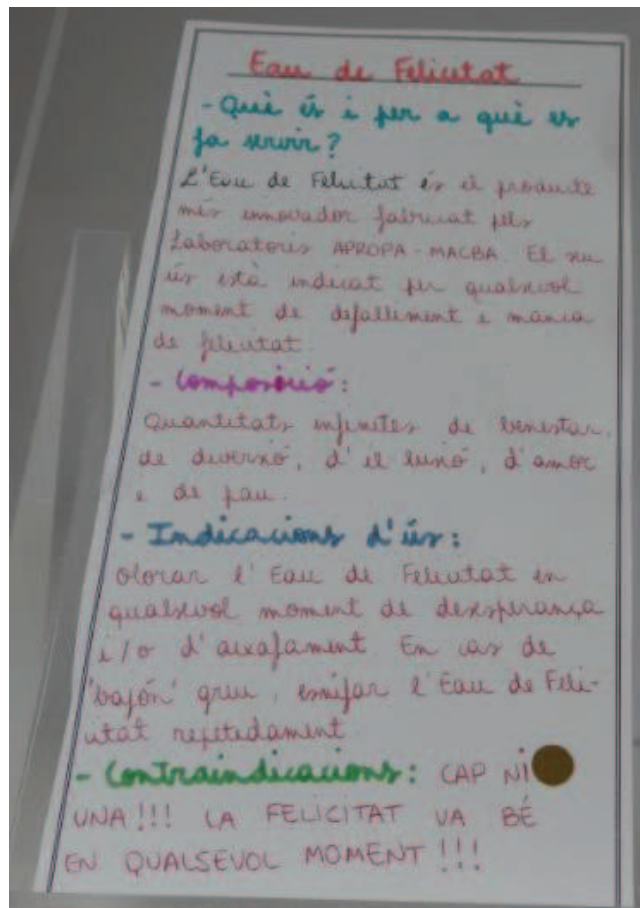 Eau de Felicitat
- Què és i per a què es
fa servir?
L'Eau de Felicitat és el producte
més innovador fabricat pels
Laboratoris APROPA-MACBA. El seu
ús està indicat per qualsevol
moment de defalliment i manca
de felicitat.
- Composició:
Quantitats infinites de benestar,
de diversió, d'il·lusió, d'amor
i de pau.
- Indicacions d'ús:
Olorar l'Eau de Felicitat en
qualsevol moment de desesperança
i/o d'aixafament. En cas de
'bajón' greu, esnifar l'Eau de Feli-
citat repetidament.
- Contraindicacions: CAP NI
UNA!!! LA FELICITAT VA BÉ
EN QUALSEVOL MOMENT!!!